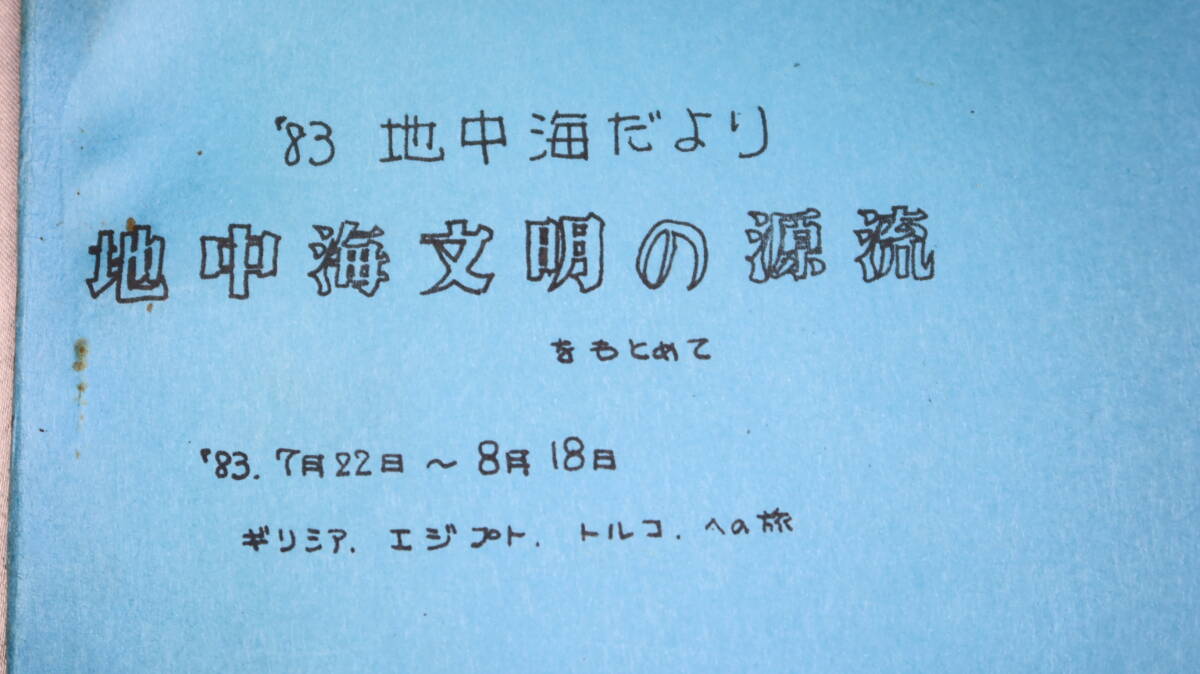 '83 地中海だより
地中海文明の源流
をもとめて
'83. 7月22日 ~ 8月18日
ギリシア. エジプト. トルコ. への旅